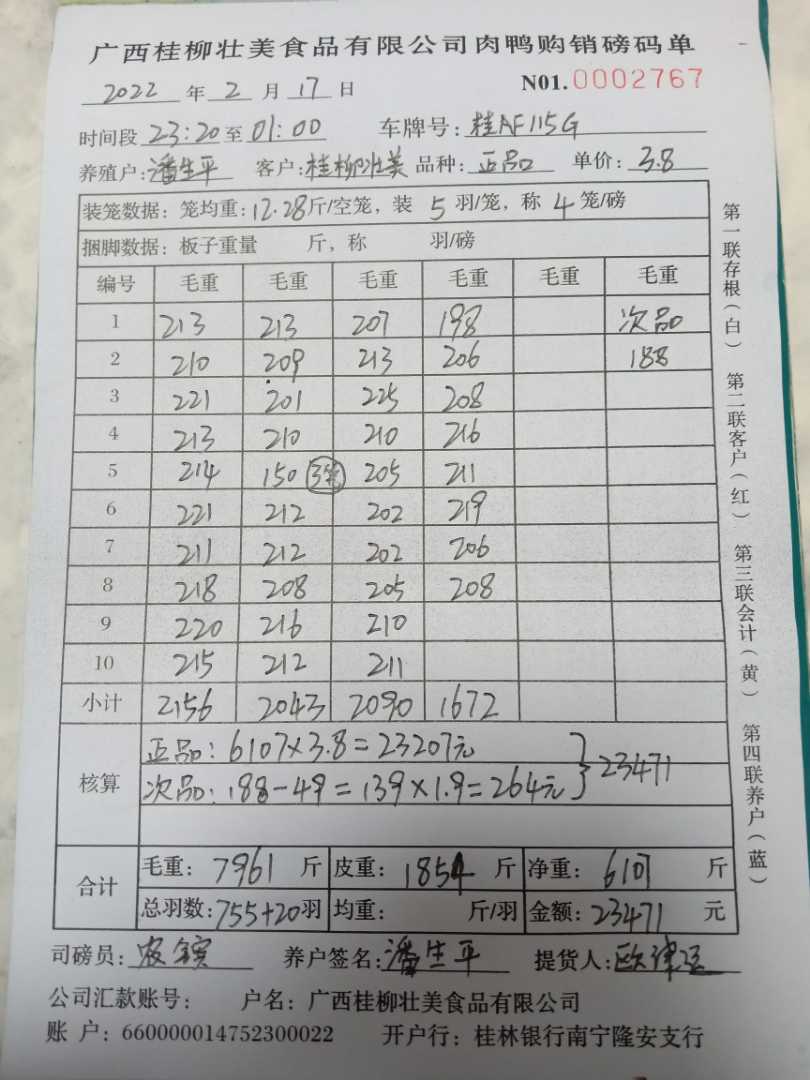 广西桂柳壮美食品有限公司肉鸭购销磅码单
2022 年 2 月 17 日 N01.0002767
时间段 23:20 至 01:00 车牌号: 桂AF115G
养殖户: 潘生平 客户: 桂柳壮美 品种: 正品 单价: 3.8
装笼数据: 笼均重: 12.28 斤/空笼, 装 5 羽/笼, 称 4 笼/磅
捆脚数据: 板子重量 斤, 称 羽/磅
编号 毛重 毛重 毛重 毛重 毛重 毛重
1 213 213 207 198 次品
2 210 209 213 206 188
3 221 201 225 208
4 213 210 210 216
5 214 150 3笼 205 211
6 221 212 202 219
7 211 212 202 206
8 218 208 205 208
9 220 216 210
10 215 212 211
小计 2156 2043 2090 1672
核算
正品: 6107×3.8=23207元
次品: 188-49=139×1.9=264元 } 23471
合计
毛重: 7961 斤 皮重: 1854 斤 净重: 6107 斤
总羽数: 755+20 羽 均重: 斤/羽 金额: 23471 元
司磅员: 养户签名: 潘生平 提货人:
公司汇款账号: 户名: 广西桂柳壮美食品有限公司
账 户: 660000014752300022 开户行: 桂林银行南宁隆安支行
第一联存根(白) 第二联客户(红) 第三联会计(黄) 第四联养户(蓝)